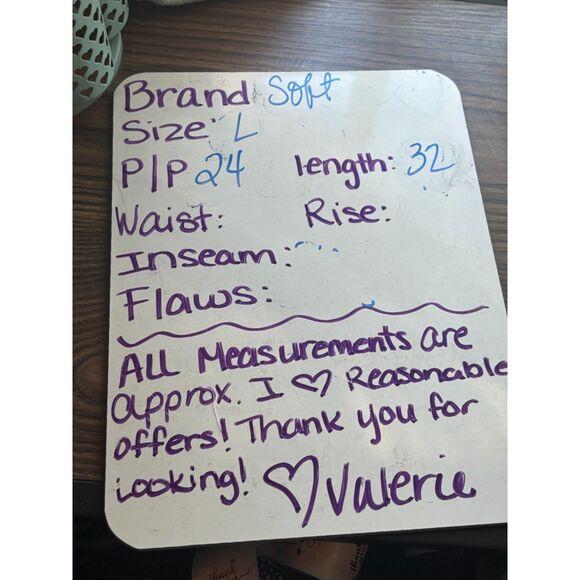 Brand Soft
Size: L
P/P 24 length: 32
Waist: Rise:
Inseam:
Flaws:
ALL Measurements are
approx. I ♡ Reasonable
offers! Thank you for
Looking! ♡ Valerie
Thank